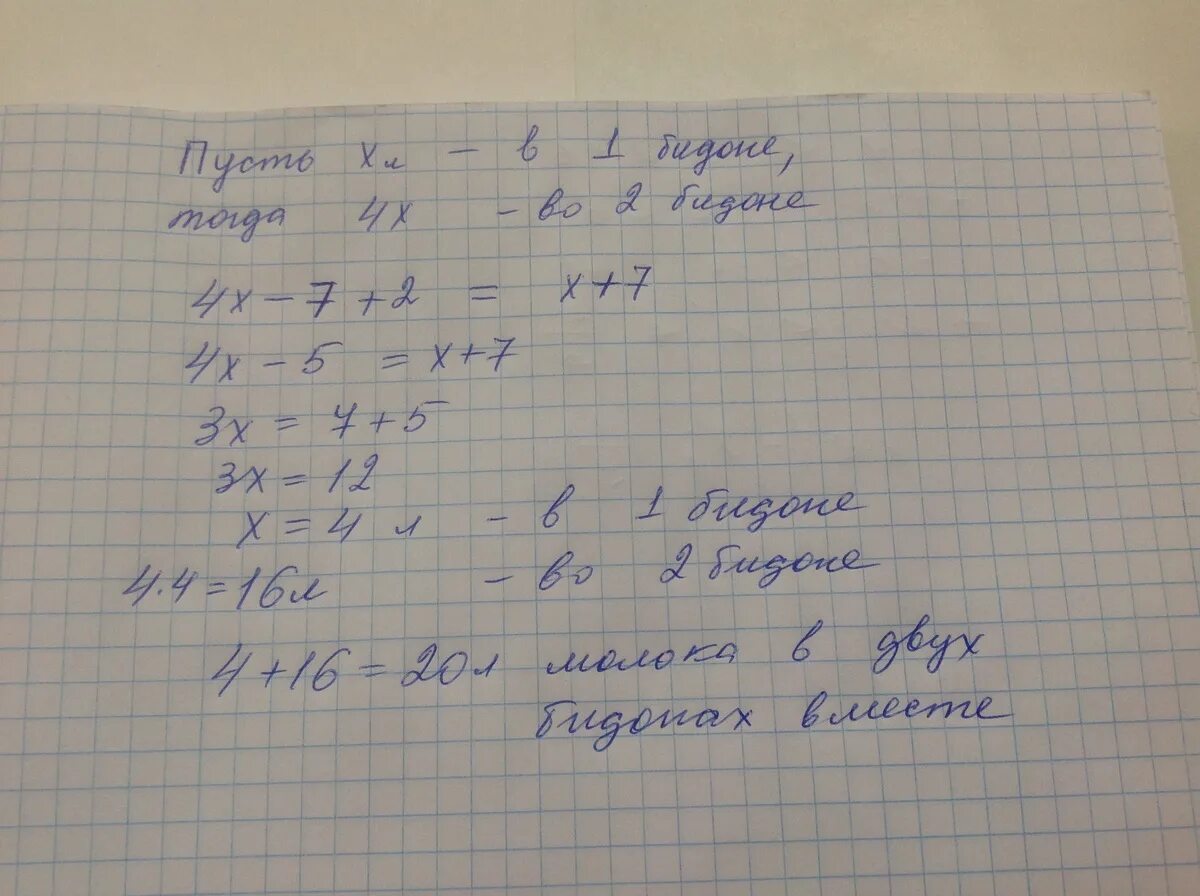 Пусть х л - в 1 бидоне,
тогда 4х - во 2 бидоне
4х - 7 + 2 = х + 7
4х - 5 = х + 7
3х = 7 + 5
3х = 12
х = 4 л - в 1 бидоне
4 · 4 = 16 л - во 2 бидоне
4 + 16 = 20 л молока в двух
бидонах вместе